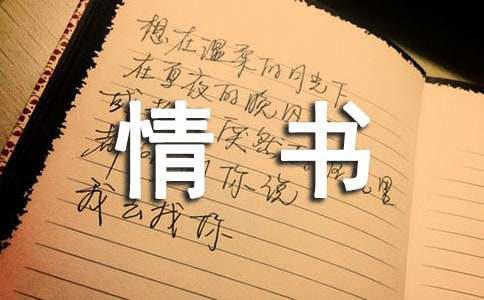 想在温柔的月光下
在夏夜的晚风
或 突然 里
情 书
你说
我去找你